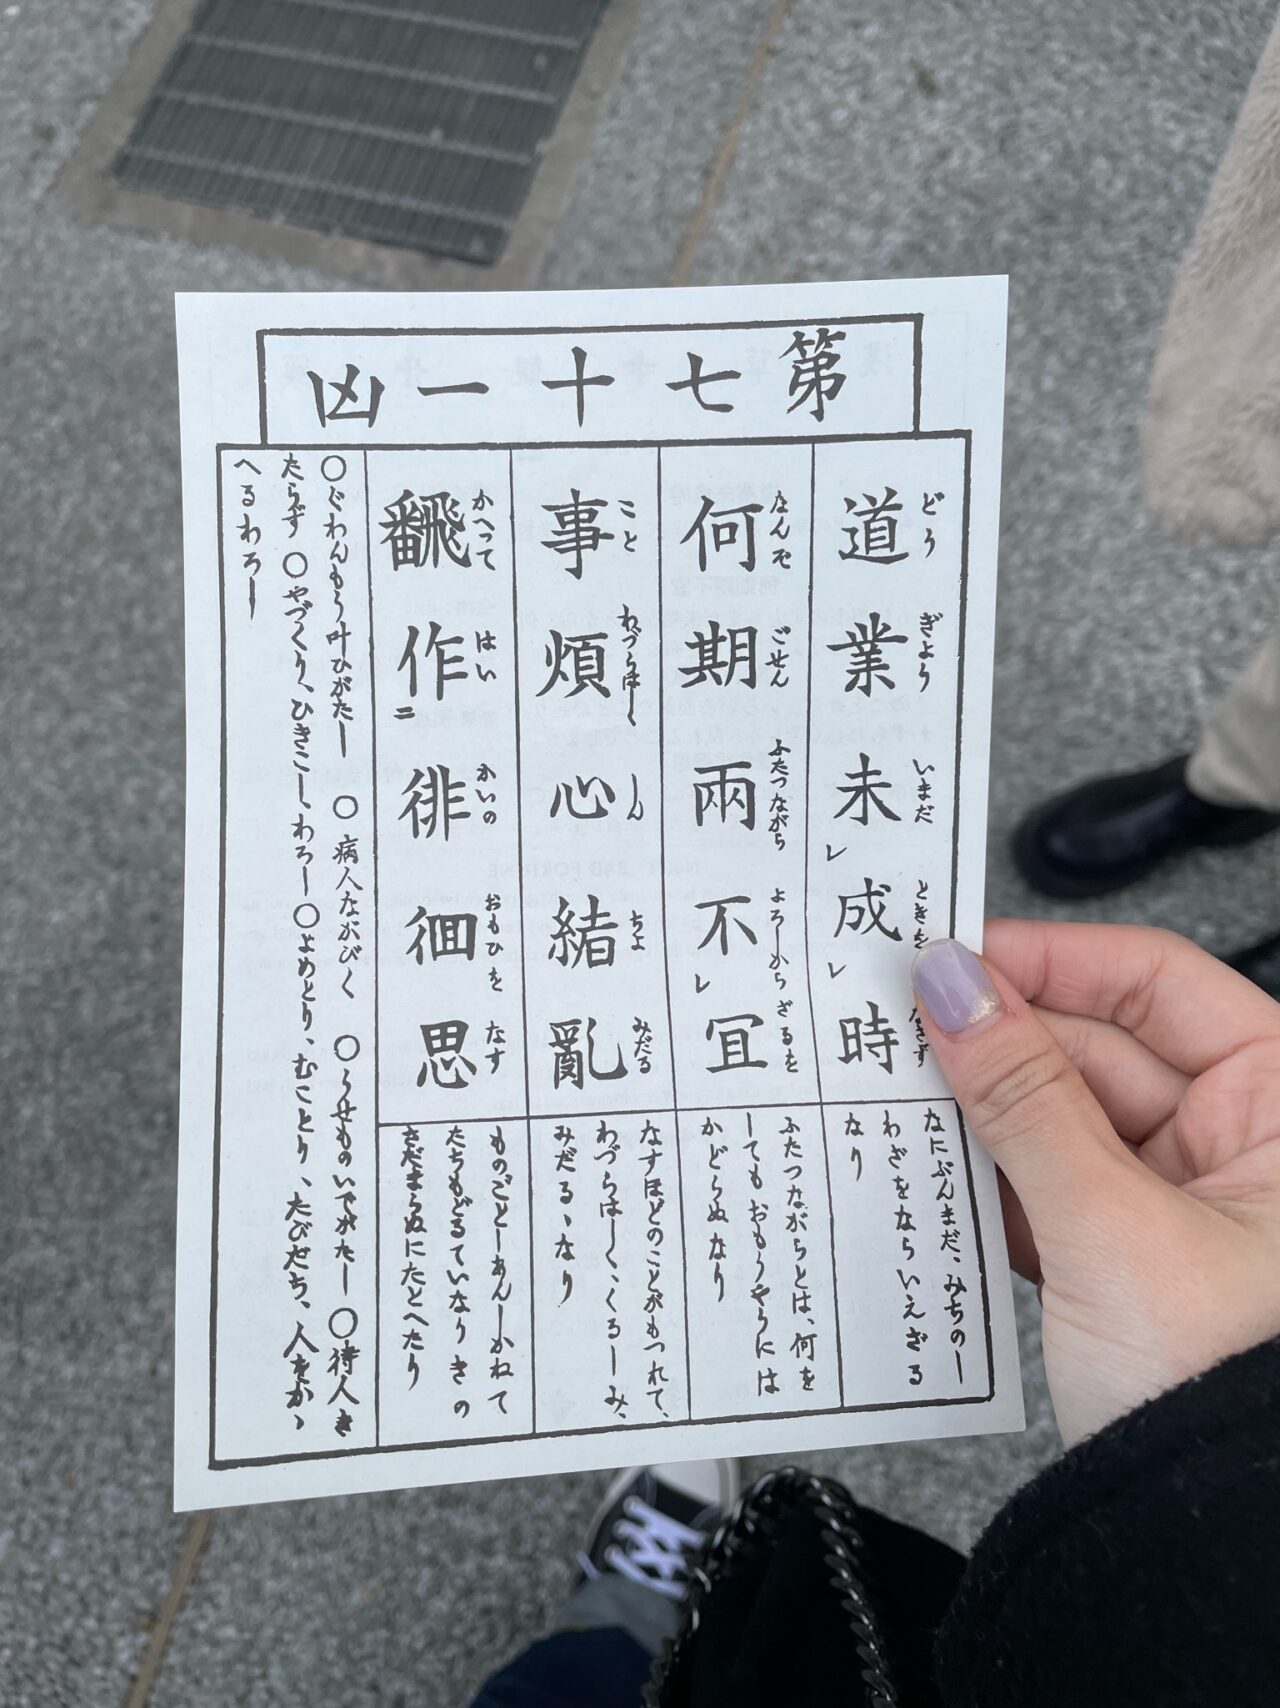 第七十一凶
道業未レ成レ時
どう ぎよう いまだ ときを なさず
なにぶんまだ、みちのし
わざをならいえざる
なり
何期兩不レ宜
なんぞ ごせん ふたつながら よろしからざるを
ふたつながらとは、何を
してもおもうやうには
かどらぬなり
事煩心緒亂
こと わづらはしく しん ちよ みだる
なすほどのことがもつれて、
わづらはしく、くるしみ、
みだるゝなり
飜作二徘徊思
かへつて はい かいの おもひを なす
ものごとしあんしかねて
たちもどるていなりきの
さだまらぬにたとへたり
○ぐわんもう叶ひがたし ○病人ながびく ○うせものいでがたし ○待人き
たらず ○やづくり、ひきこしわろし ○よめとり、むことり、たびだち、人をかゝ
へるわろし